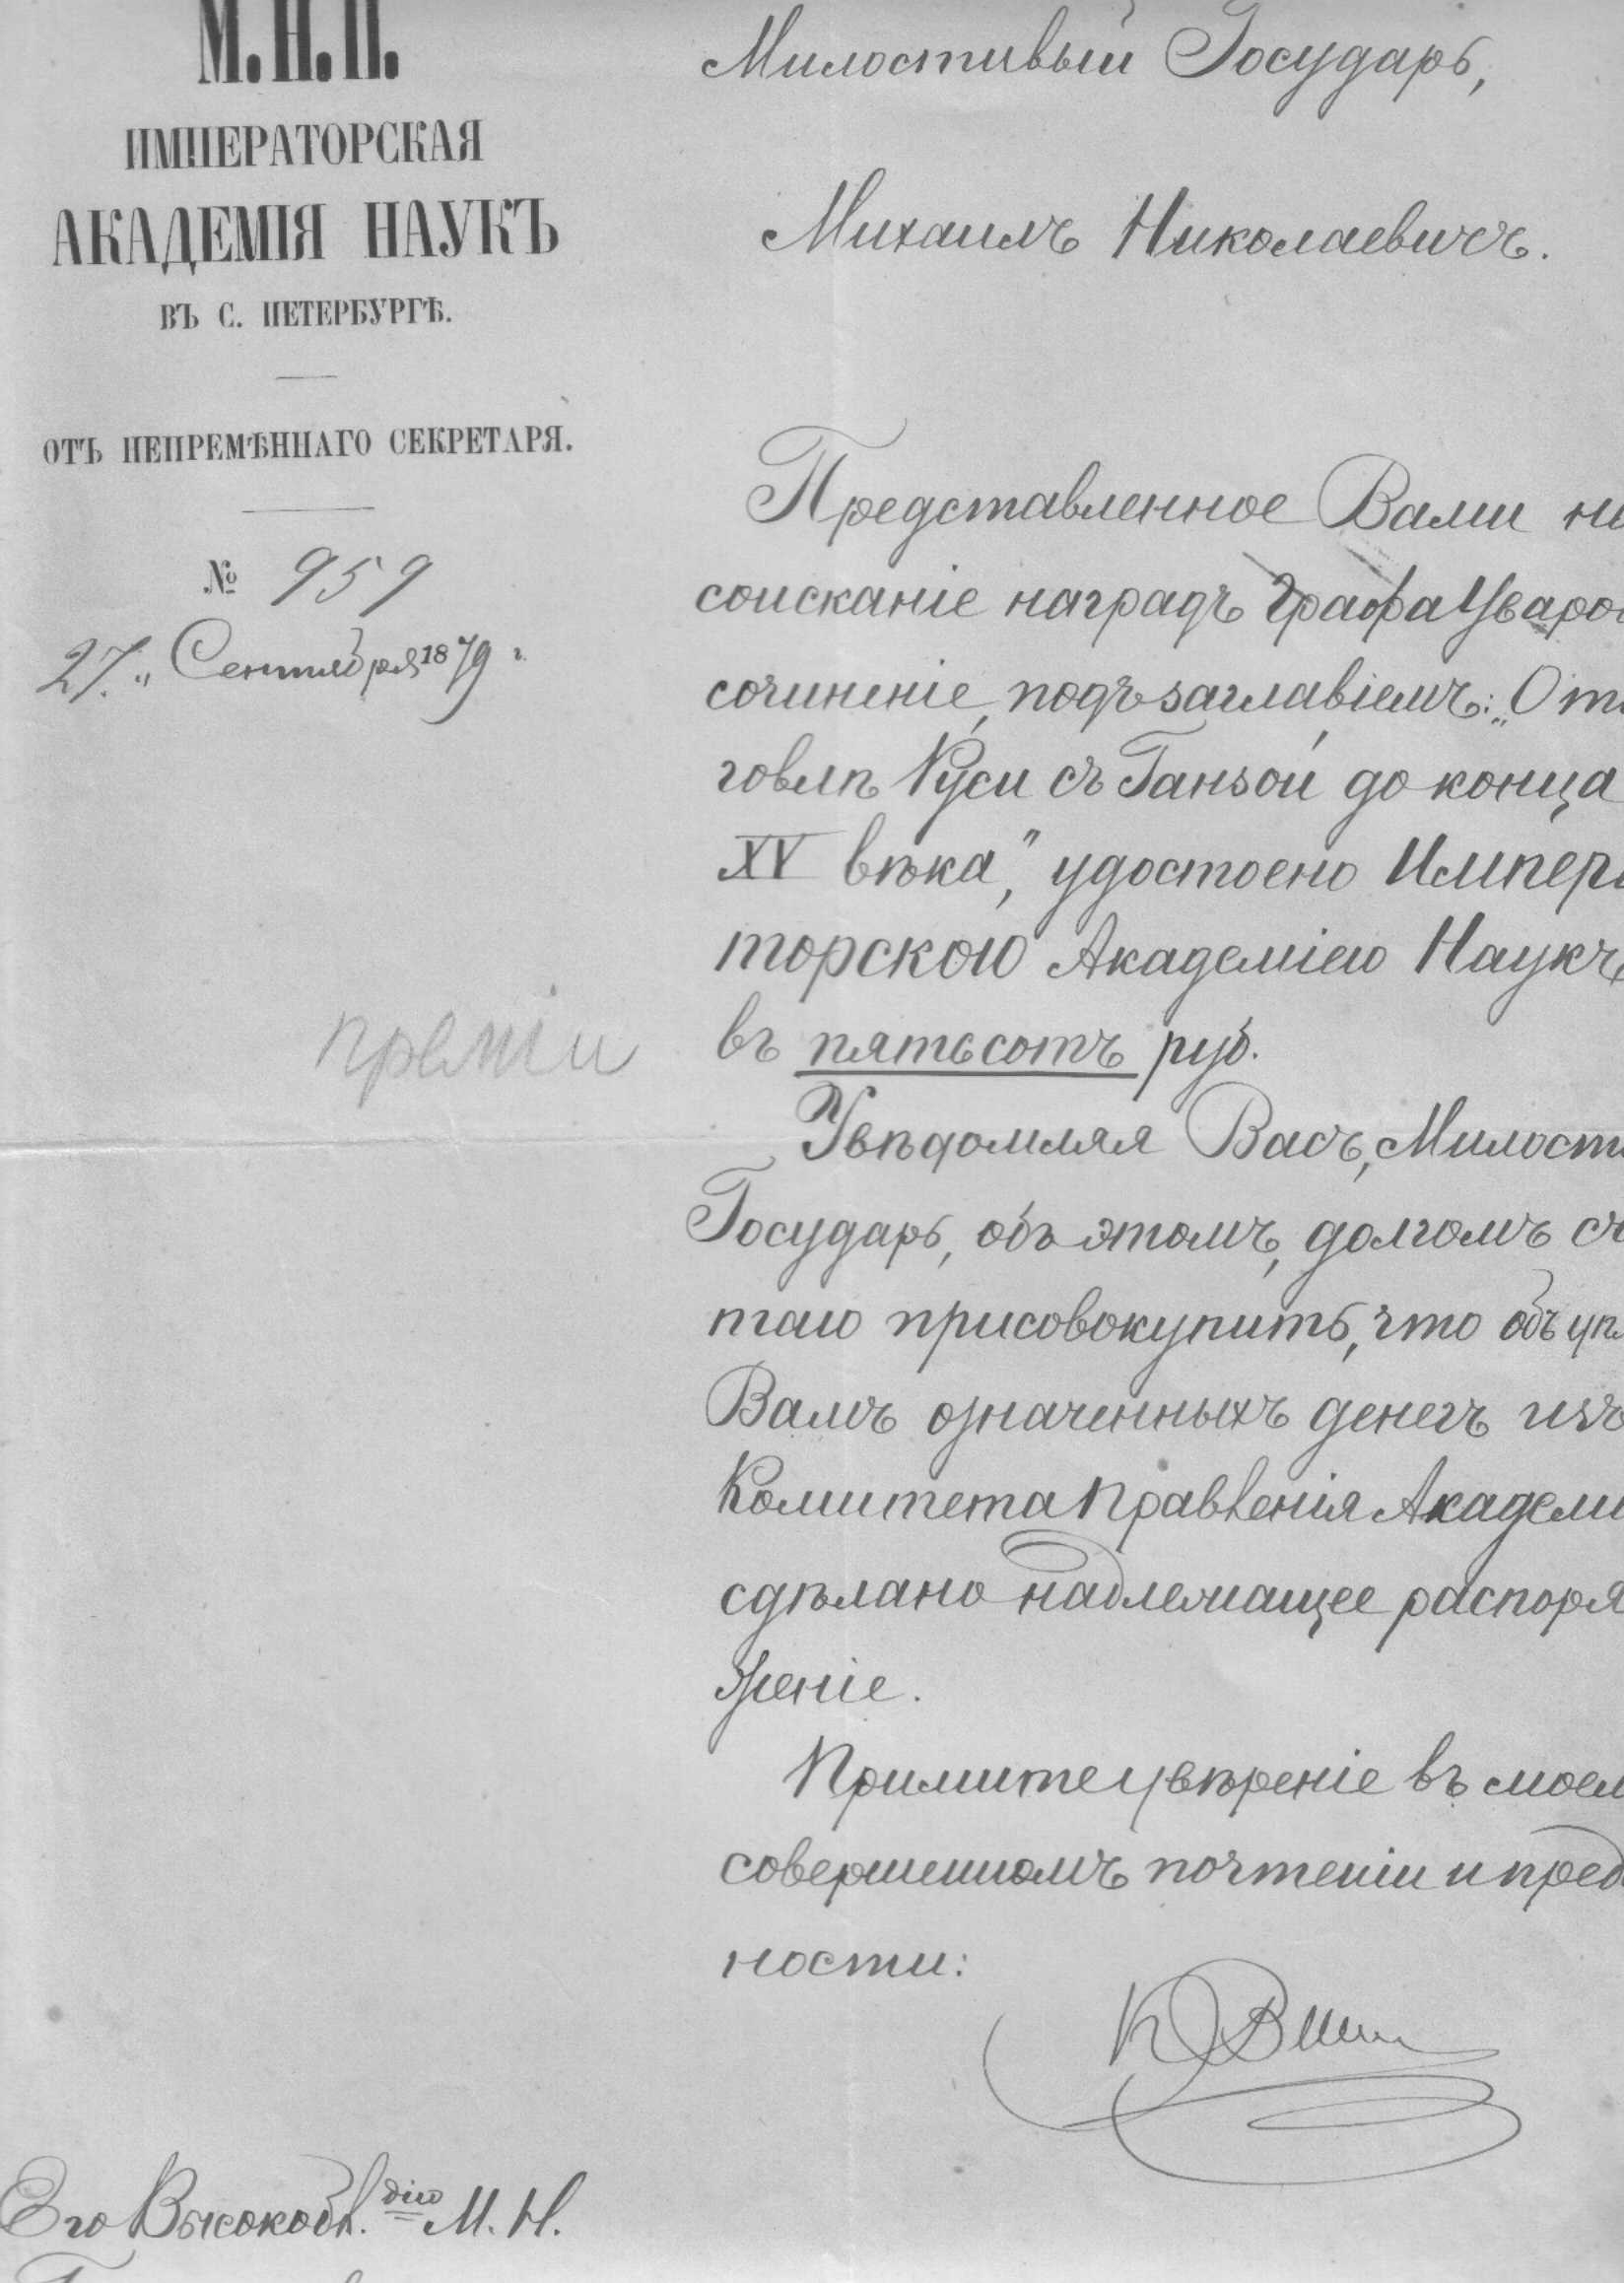 М.Н.П.
ИМПЕРАТОРСКАЯ
АКАДЕМІЯ НАУКЪ
ВЪ С. ПЕТЕРБУРГѢ.
ОТЪ НЕПРЕМѢННАГО СЕКРЕТАРЯ.
№ 959
27. " Сентября 1879 г.
преміи
Его Высокобл. дію М. Н.
Милостивый Государь,
Михаилъ Николаевичъ.
Представленное Вами на
соисканіе наградъ Графа Уваро
сочиненіе, подъ заглавіемъ: „О то
говлѣ Руси съ Ганзой до конца
XV вѣка," удостоено Импера
торскою Академіею Наукъ
въ пятьсотъ руб.
Увѣдомляя Васъ, Милости
Государь, объ этомъ, долгомъ сч
таю присовокупить, что объ упл
Вамъ означенныхъ денегъ изъ
Комитета Правленія Академіи
сдѣлано надлежащее распоря
женіе.
Примите увѣреніе въ моем
совершенномъ почтеніи и преда
ности: